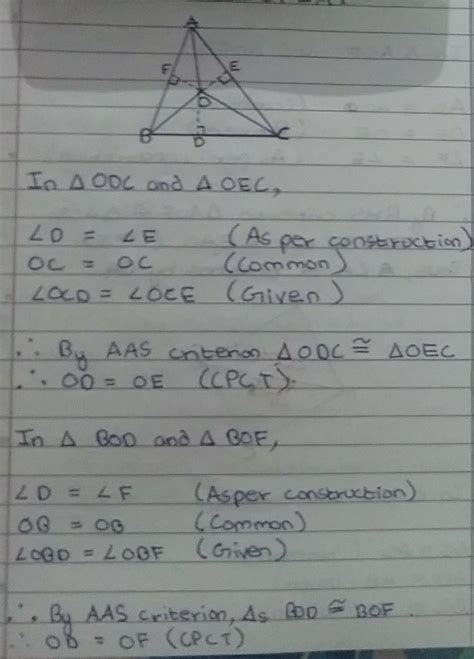 A
F E
O
B D C
In △ ODC and △ OEC,
∠D = ∠E (As per construction)
OC = OC (Common)
∠OCD = ∠OCE (Given)
∴ By AAS criterion △ODC ≅ △OEC
∴ OD = OE (CPCT).
In △ BOD and △ BOF,
∠D = ∠F (As per construction)
OB = OB (Common)
∠OBD = ∠OBF (Given)
∴ By AAS criterion, △s BOD ≅ BOF.
∴ OD = OF (CPCT)